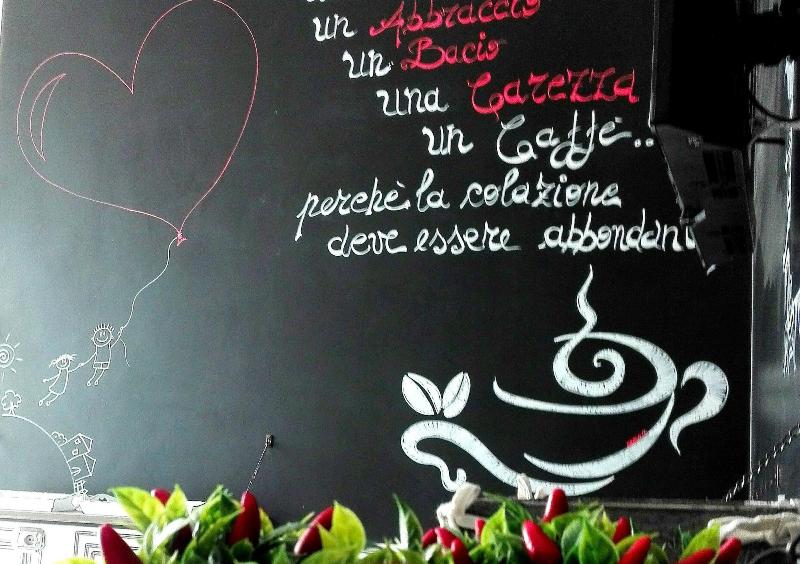 un Abbraccio
un Bacio
una Carezza
un Caffè..
perchè la colazione
deve essere abbondant